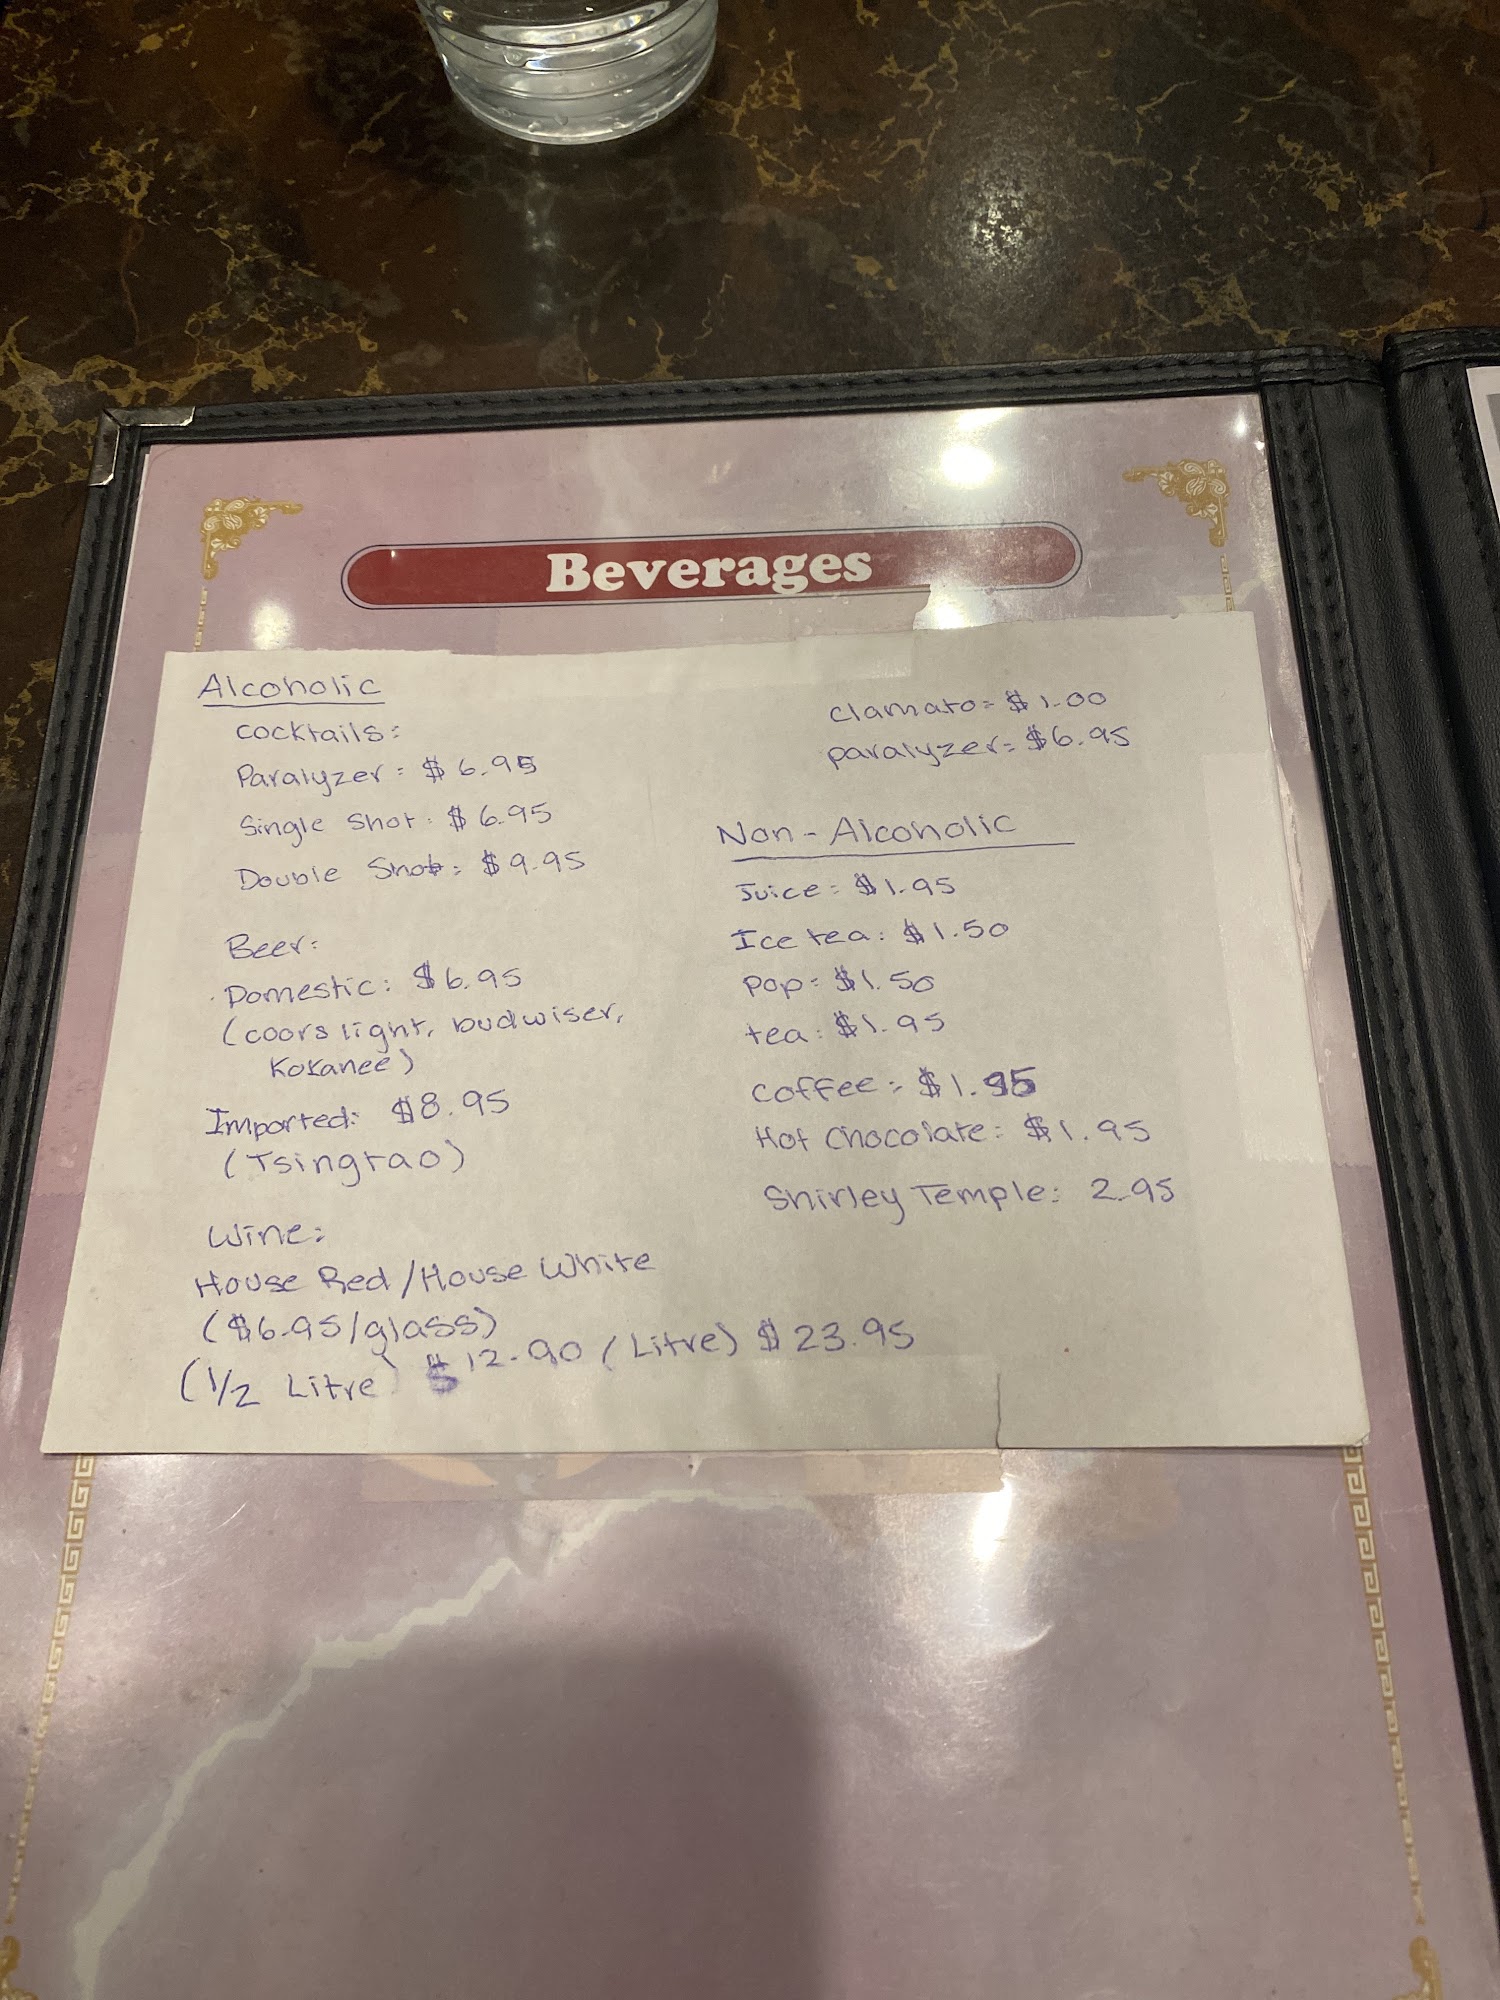 Beverages
Alcoholic
cocktails:
Paralyzer: $6.95
Single Shot: $6.95
Double Shot: $9.95
Beer:
Domestic: $6.95
(coors light, budwiser,
Kokanee)
Imported: $8.95
(Tsingtao)
Wine:
House Red/House White
($6.95/glass)
(1/2 Litre) $12.90 (Litre) $23.95
clamato= $1.00
paralyzer= $6.95
Non-Alcoholic
Juice: $1.95
Ice tea: $1.50
pop: $1.50
tea: $1.95
coffee: $1.95
Hot Chocolate: $1.95
Shirley Temple: 2.95